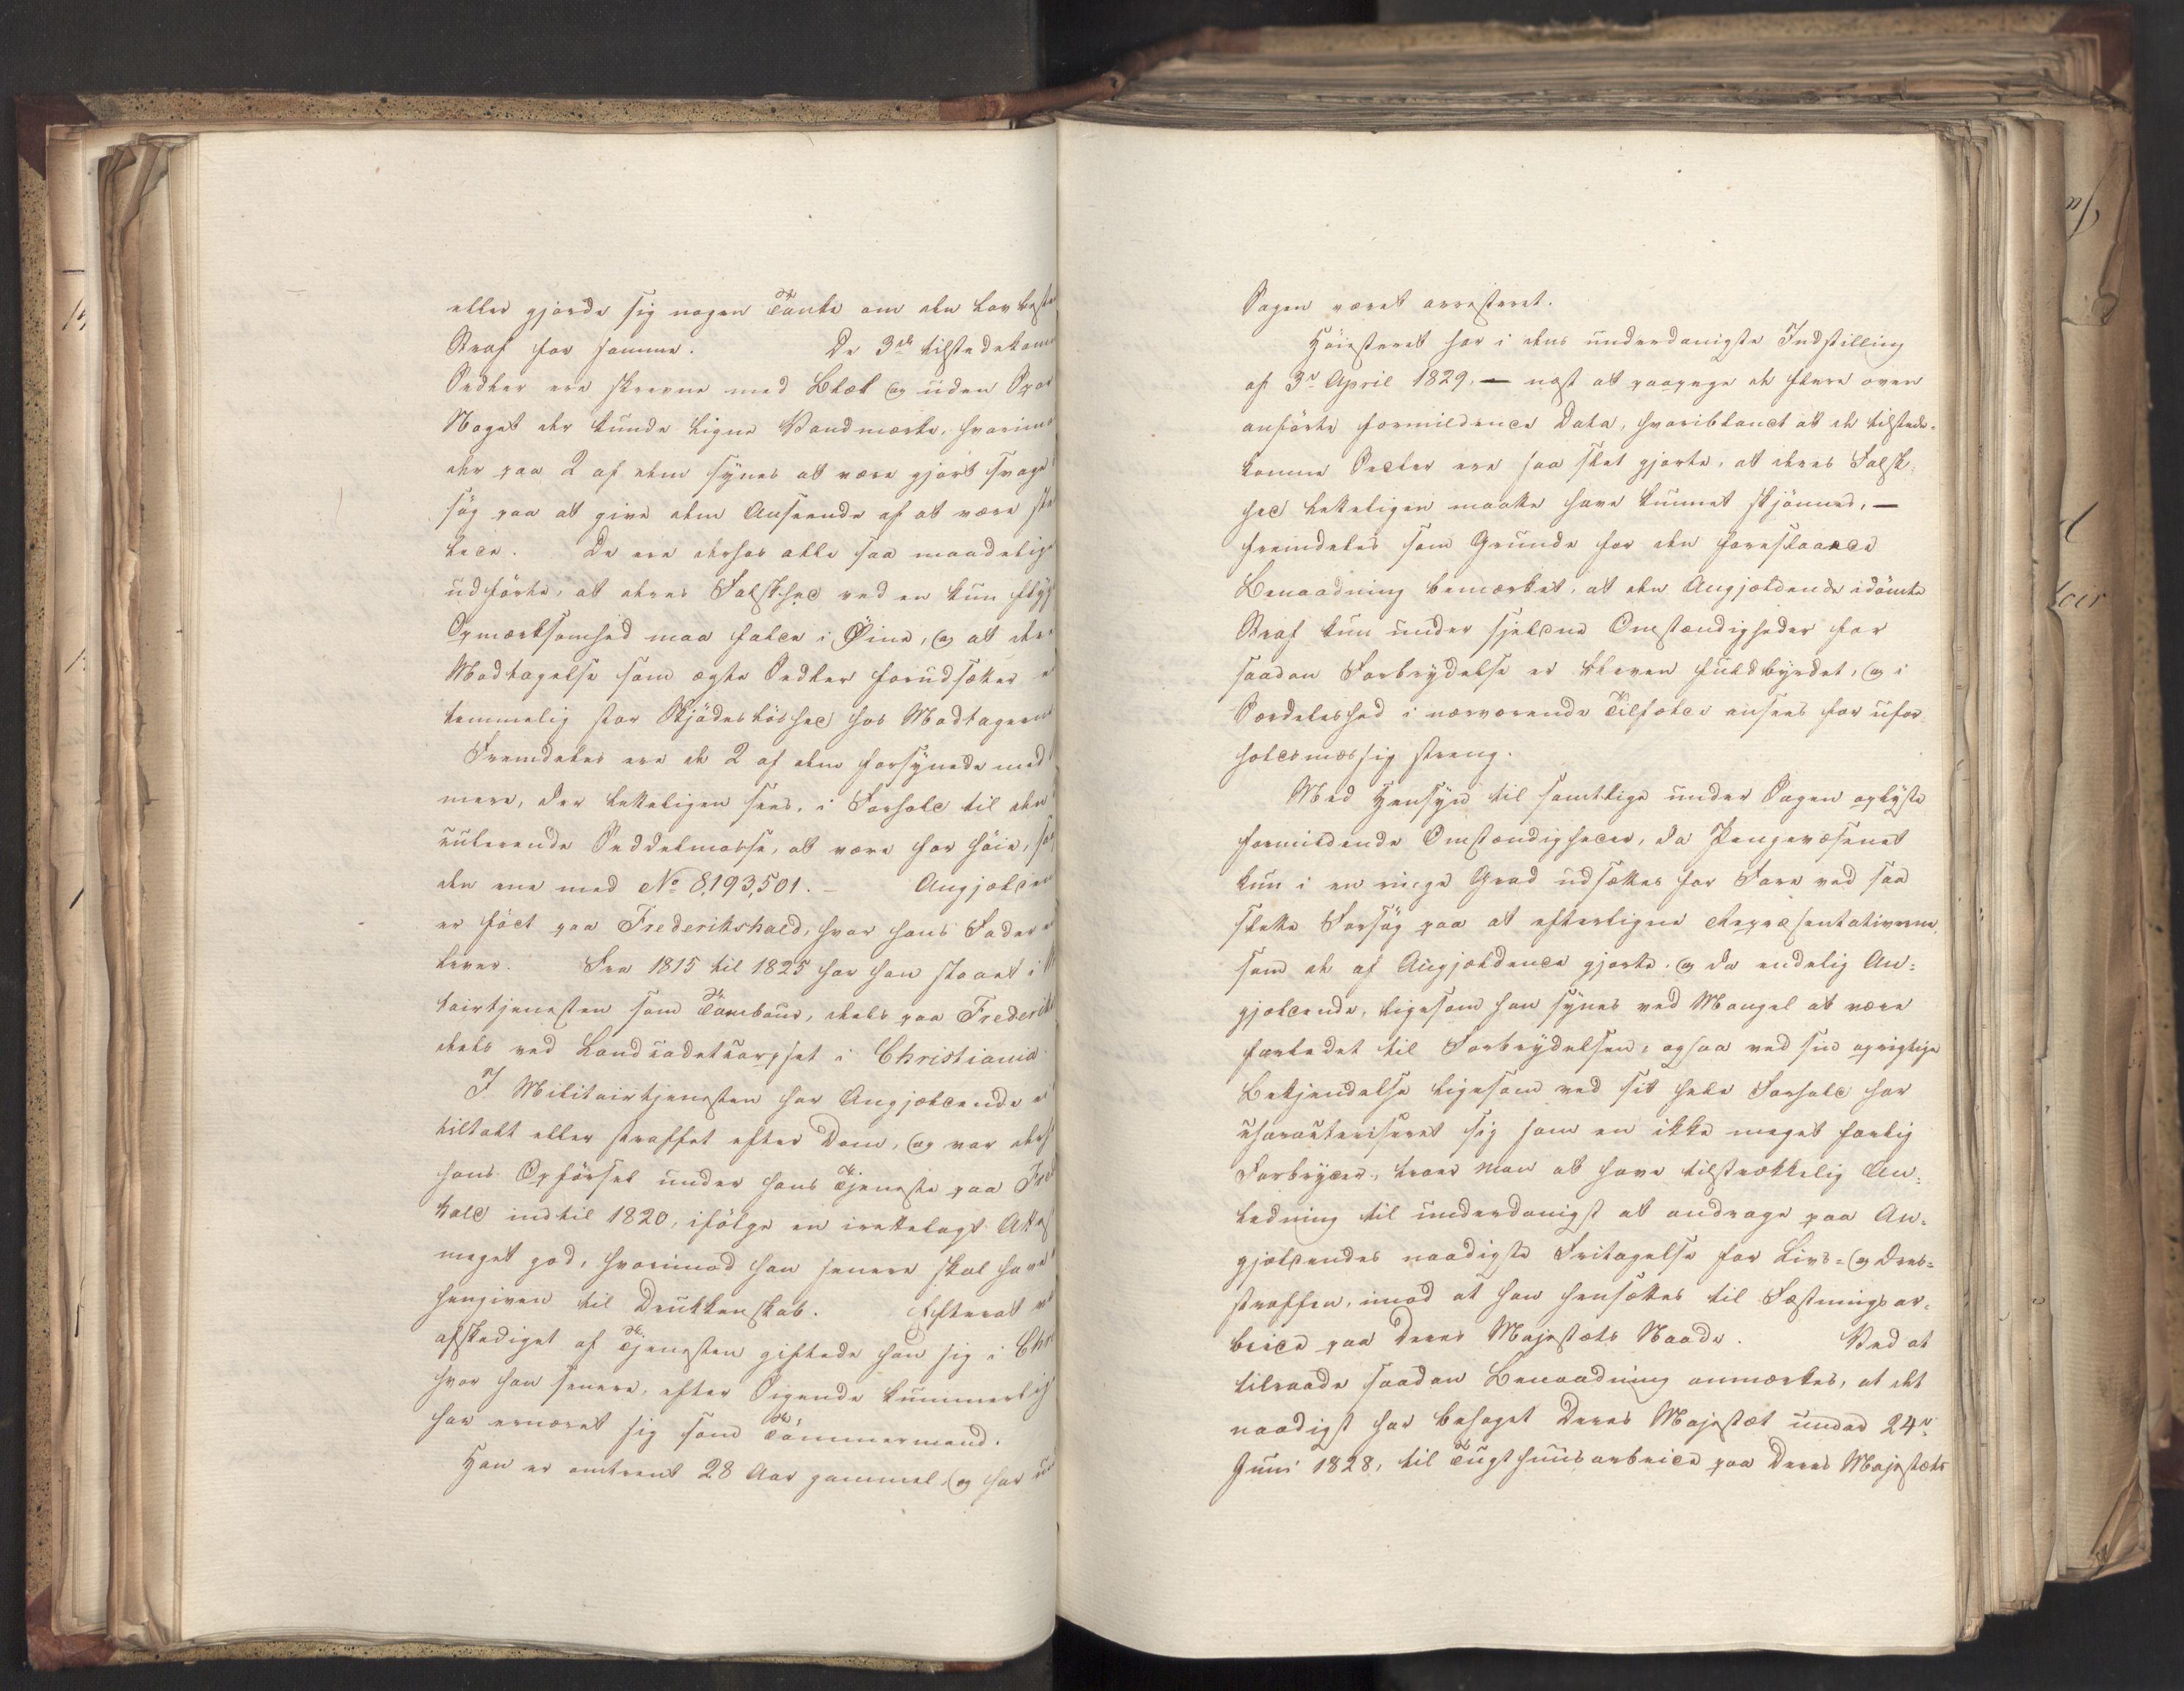 eller gjorde sig nogen Tanke om den lovbeste
Straf for samme. De 3de tilstedekom
Sedler ere skrevne med Blæk og uden Spor
Noget der kunde ligne Vandmærke, hvorimo
der paa 2 af dem synes at være gjort svage
søg paa at give dem Anseende af at være
lede. De ere derhos alle saa maadelige
udførte, at deres Falskhed ved en kun flyg
Opmærksomhed maa falde i Øine, og at der
Modtagelse som ægte Sedler forudsætter
temmelig stor Skjødesløshed hos Modtageren
Fremdeles ere de 2 af dem forsynede med
mere, der letteligen sees, i Forhold til den
culerende Seddelmasse, at være for høie,
den ene med No 8,193,501. – Angjælden
er født paa Frederikshald, hvor hans Fader
lever. Fra 1815 til 1825 har han staaet i
tairtjenesten som Tambour, deels paa Frederik
deels ved Landcadetcorpset i Christiania
I Militairtjenesten har Angjældende
tiltalt eller straffet efter Dom, og var
hans Opførsel under hans Tjeneste paa Fred
hald indtil 1820, ifølge en irettelagt Attes
meget god, hvorimod han senere skal have
hengiven til Drukkenskab. Efterat
afskediget af Tjenesten giftede han sig i Chr
hvor han senere, efter Sigende kummerlig
har ernæret sig som Tømmermand.
Han er omtrent 28 Aar gammel og har
Sagen været arresteret.
Høiesteret har i dens underdanigste Indstilling
af 3d April 1829, — næst at paapege de flere oven
anførte formildende Data, hvoriblandt at de tilstede-
komne Sedler ere saa slet gjorte, at deres Falsk-
hed letteligen maatte have kunnet skjønnes, —
fremdeles som Grunde for den foreslaaede
Benaadning bemærket, at den Angjældende idømte
Straf kun under sjeldne Omstændigheder for
saadan Forbrydelse er bleven fuldbyrdet, og i
Særdeleshed i nærværende Tilfælde ansees for ufor-
holdsmæssig streng.
Med Hensyn til samtlige under Sagen oplyste
formildende Omstændigheder, da Pengevæsenet
kun i en ringe Grad udsættes for Fare ved saa
slette Forsøg paa at efterligne Repræsentativerne,
som de af Angjældende gjorte, og da endelig An-
gjældende, ligesom han synes ved Mangel at være
forledet til Forbrydelsen, ogsaa ved sin oprigtige
Bekjendelse ligesom ved sit hele Forhold har
characteriseret sig som en ikke meget farlig
Forbryder, troer man at have tilstrækkelig An-
ledning til underdanigst at andrage paa An-
gjældendes naadigste Fritagelse for Livs- og Æres-
straffen, imod at han hensættes til Fæstningsar-
beide paa Deres Majestæts Naade. Ved at
tilraade saadan Benaadning anmærkes, at det
naadigst har behaget Deres Majestæt under 24d
Juni 1828, til Tugthuusarbeide paa Deres Majestæts